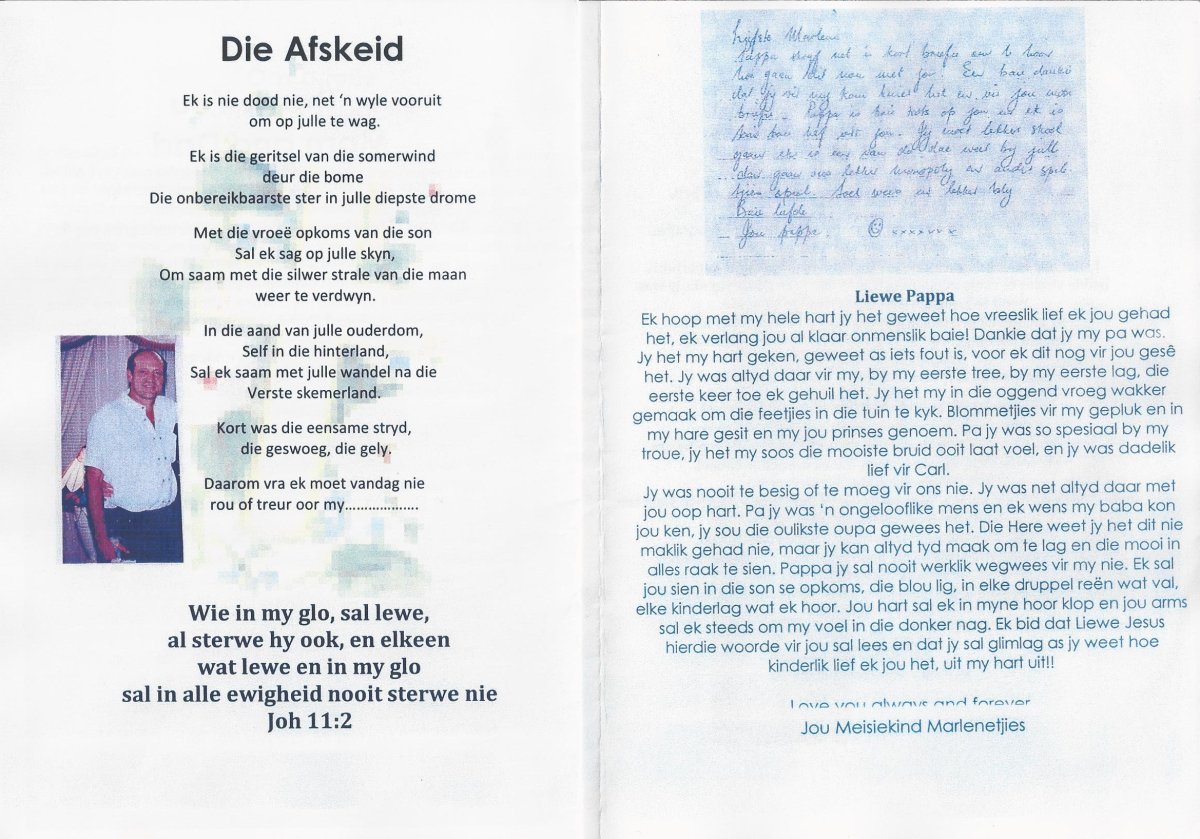 Die Afskeid
Ek is nie dood nie, net ‘n wyle vooruit
om op julle te wag.
Ek is die geritsel van die somerwind
deur die bome
Die onbereikbaarste ster in julle diepste drome
Met die vroeë opkoms van die son
Sal ek sag op julle skyn,
Om saam met die silwer strale van die maan
weer te verdwyn.
In die aand van julle ouderdom,
Self in die hinterland,
Sal ek saam met julle wandel na die
Verste skemerland.
Kort was die eensame stryd,
die geswoeg, die gely.
Daarom vra ek moet vandag nie
rou of treur oor my...................
Wie in my glo, sal lewe,
al sterwe hy ook, en elkeen
wat lewe en in my glo
sal in alle ewigheid nooit sterwe nie
Joh 11:2
Liefste Marlene
Pappa skryf net 'n kort briefie om te hoor
hoe gaan dit nou met jou? En baie dankie
dat jy vir my kom kuier het en vir jou mooi
briefie. Pappa is baie trots op jou en ek is
baie baie lief vir jou. Jy moet lekker skool
gaan ek is een van do dae weer by julle
dan gaan ons lekker monopoly en ander spele-
tjies speel. Soet wees en lekker bly
Baie liefde
Jou pappa. ☺ xxxxxxx
Liewe Pappa
Ek hoop met my hele hart jy het geweet hoe vreeslik lief ek jou gehad
het, ek verlang jou al klaar onmenslik baie! Dankie dat jy my pa was.
Jy het my hart geken, geweet as iets fout is, voor ek dit nog vir jou gesê
het. Jy was altyd daar vir my, by my eerste tree, by my eerste lag, die
eerste keer toe ek gehuil het. Jy het my in die oggend vroeg wakker
gemaak om die feetjies in die tuin te kyk. Blommetjies vir my gepluk en in
my hare gesit en my jou prinses genoem. Pa jy was so spesiaal by my
troue, jy het my soos die mooiste bruid ooit laat voel, en jy was dadelik
lief vir Carl.
Jy was nooit te besig of te moeg vir ons nie. Jy was net altyd daar met
jou oop hart. Pa jy was 'n ongelooflike mens en ek wens my baba kon
jou ken, jy sou die oulikste oupa gewees het. Die Here weet jy het dit nie
maklik gehad nie, maar jy kan altyd tyd maak om te lag en die mooi in
alles raak te sien. Pappa jy sal nooit werklik wegwees vir my nie. Ek sal
jou sien in die son se opkoms, die blou lig, in elke druppel reën wat val,
elke kinderlag wat ek hoor. Jou hart sal ek in myne hoor klop en jou arms
sal ek steeds om my voel in die donker nag. Ek bid dat Liewe Jesus
hierdie woorde vir jou sal lees en dat jy sal glimlag as jy weet hoe
kinderlik lief ek jou het, uit my hart uit!!
Love you always and forever
Jou Meisiekind Marlenetjies